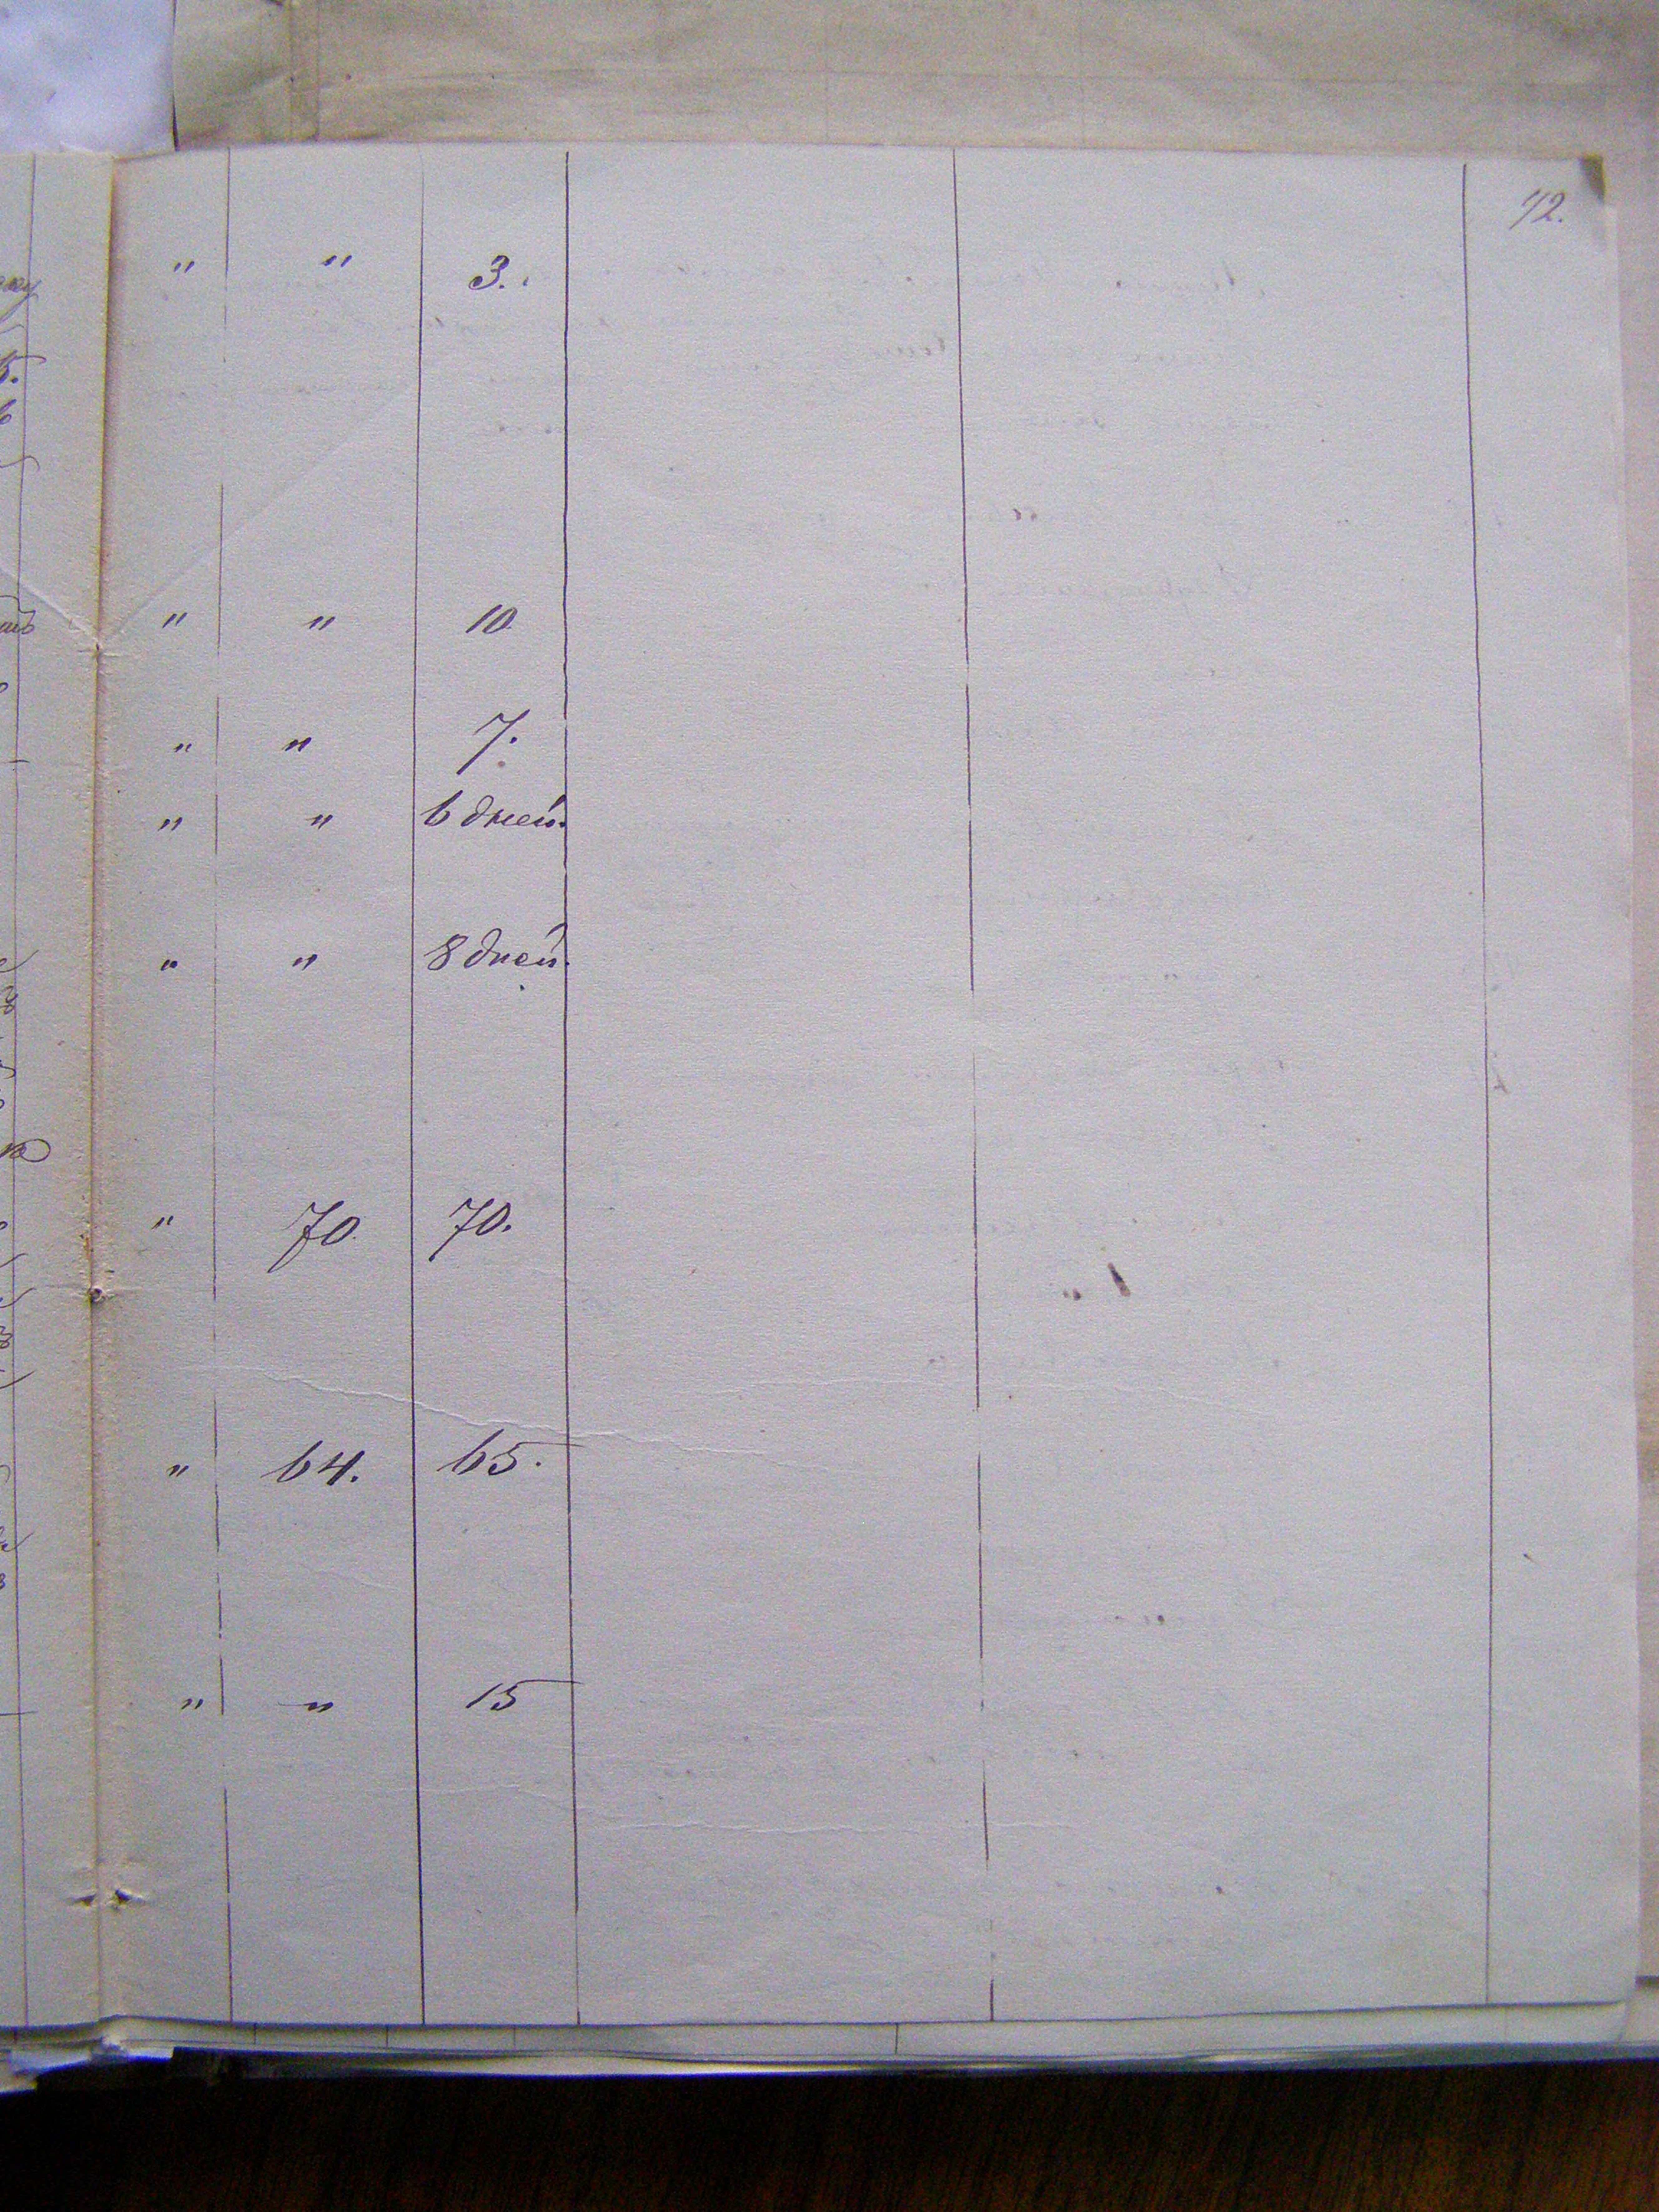 42.
" " 3.
" " 10
" " 7.
" " 6 дней.
" " 8 дней.
" 70. 70.
" 64. 65.
" " 15